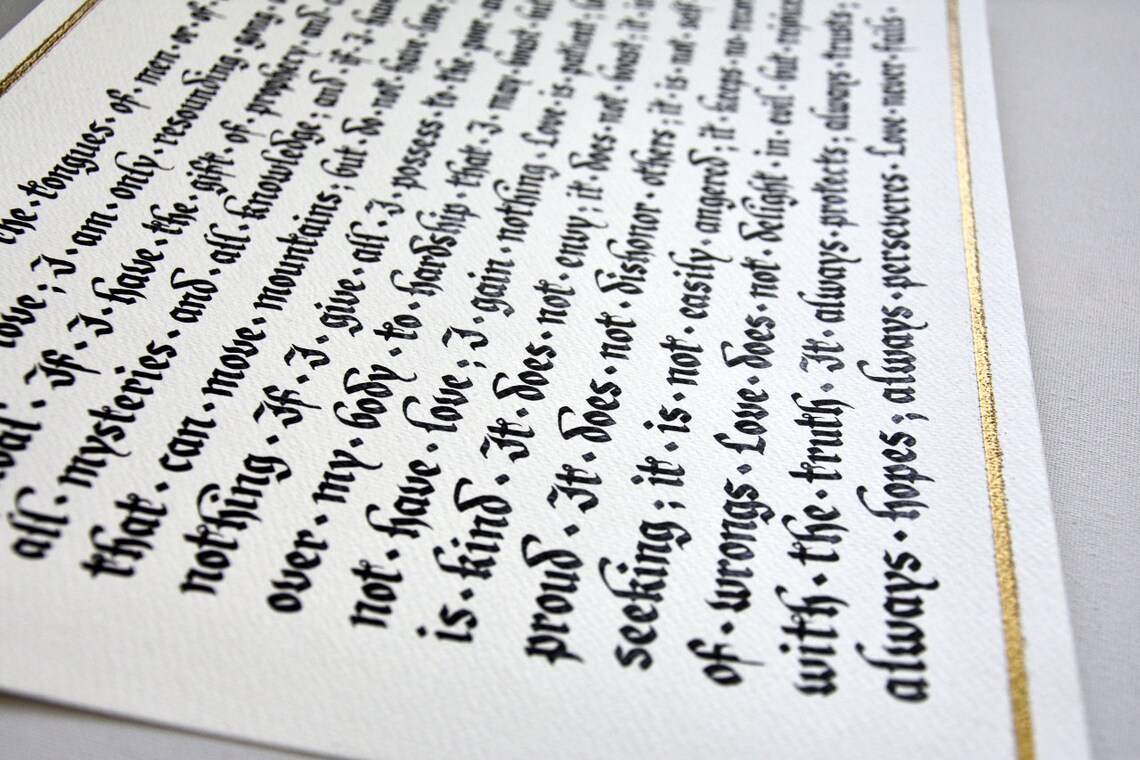 the · tongues · of · men · or · of
love ; I · am · only · resounding · gong ·
If · I · have · the · gift · of · prophecy · and ·
all · mysteries · and · all · knowledge ; and · if · I · have
that · can · move · mountains ; but · do · not · have · love ;
nothing · If · I · give · all · I · possess · to · the · poor ·
over · my · body · to · hardship · that · I · may · boast ·
not · have · love ; I · gain · nothing · Love · is · patient ;
is · kind · It · does · not · envy ; it · does · not · boast ; it · is
proud · It · does · not · dishonor · others ; it · is · not · self
seeking ; it · is · not · easily · angered ; it · keeps · no ·
of · wrongs · Love · does · not · delight · in · evil · but ·
with · the · truth · It · always · protects ; always · trusts ;
always · hopes ; always · perseveres · Love · never · fails ·